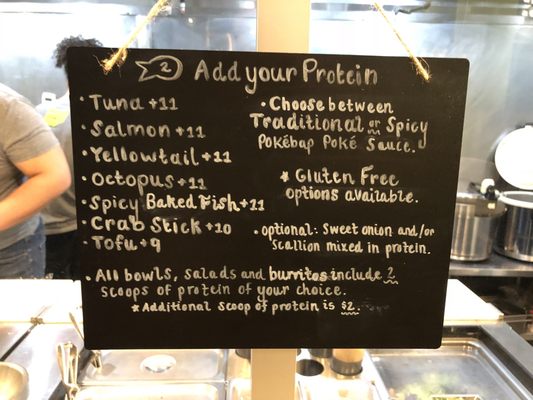 2 Add your Protein
• Tuna +11
• Salmon +11
• Yellowtail +11
• Octopus +11
• Spicy Baked Fish +11
• Crab Stick +10
• Tofu +9
• Choose between
Traditional or Spicy
Pokébap Poké Sauce.
* Gluten Free
options available.
• optional: Sweet onion and/or
scallion mixed in protein.
• All bowls, salads and burritos include 2
scoops of protein of your choice.
* Additional scoop of protein is $2.